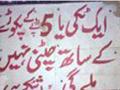 ایک ٹکی یا 5 روپے کے پکوڑے
کے ساتھ چٹنی نہیں
ملے گی